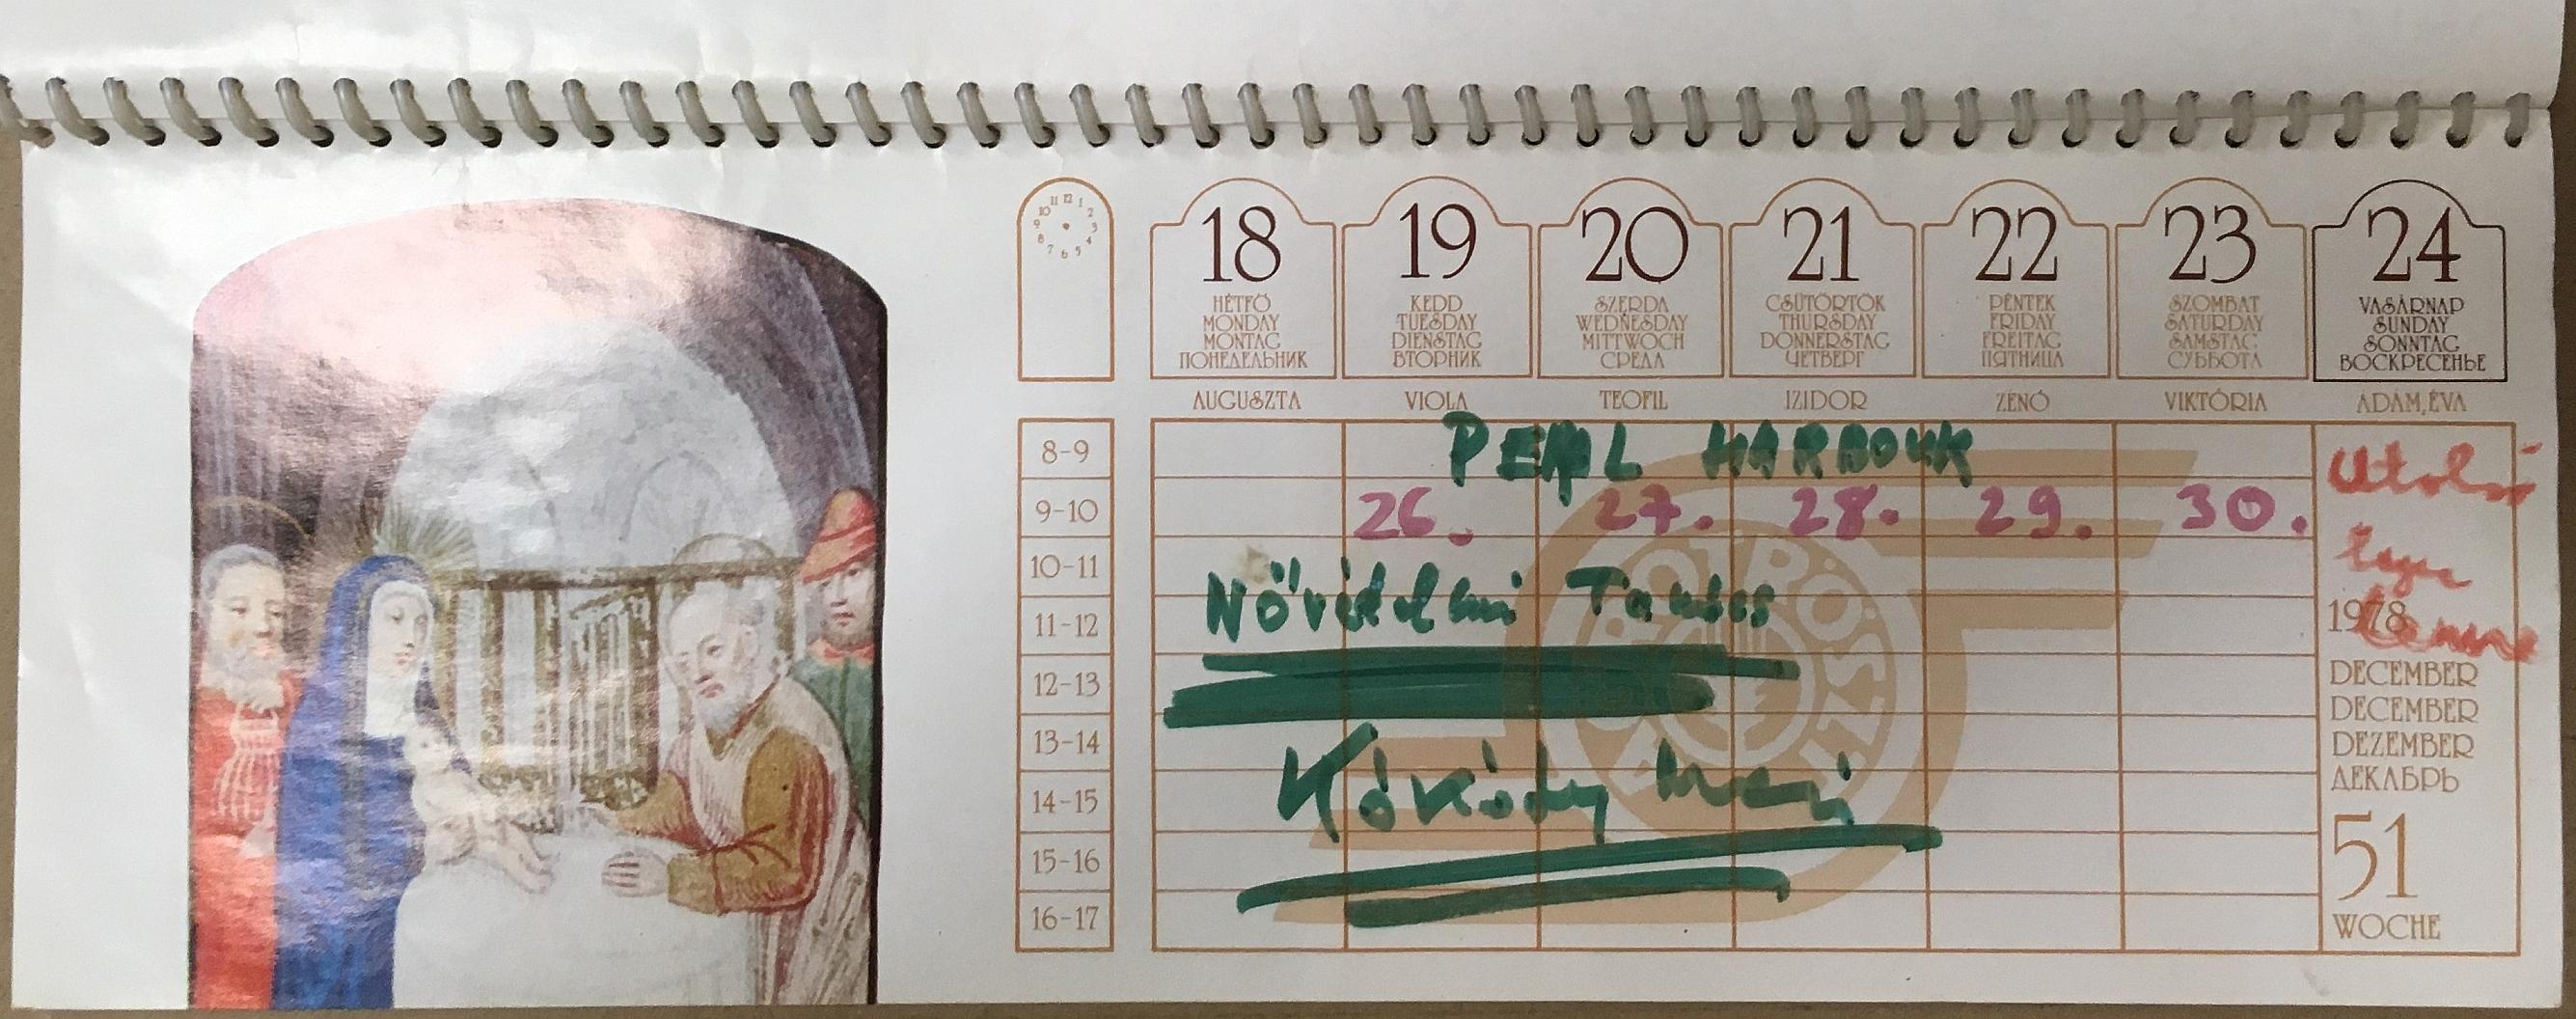 12 1 2 3 4 5 6 7 8 9 10 11
18 19 20 21 22 23 24
HÉTFŐ KEDD SZERDA CSÜTÖRTÖK PÉNTEK SZOMBAT VASÁRNAP
MONDAY TUESDAY WEDNESDAY THURSDAY FRIDAY SATURDAY SUNDAY
MONTAG DIENSTAG MITTWOCH DONNERSTAG FREITAG SAMSTAG SONNTAG
ПОНЕДЕЛЬНИК ВТОРНИК СРЕДА ЧЕТВЕРГ ПЯТНИЦА СУББОТА ВОСКРЕСЕНЬЕ
AUGUSZTA VIOLA TEOFIL IZIDOR ZÉNÓ VIKTÓRIA ÁDAM, ÉVA
8-9 PEARL HARBOUR
Utolsó
9-10 26. 27. 28. 29. 30.
10-11
Nővédelmi Tanács
11-12
1978
12-13
DECEMBER
DECEMBER
13-14
DEZEMBER
ДЕКАБРЬ
14-15
15-16
51
16-17
WOCHE